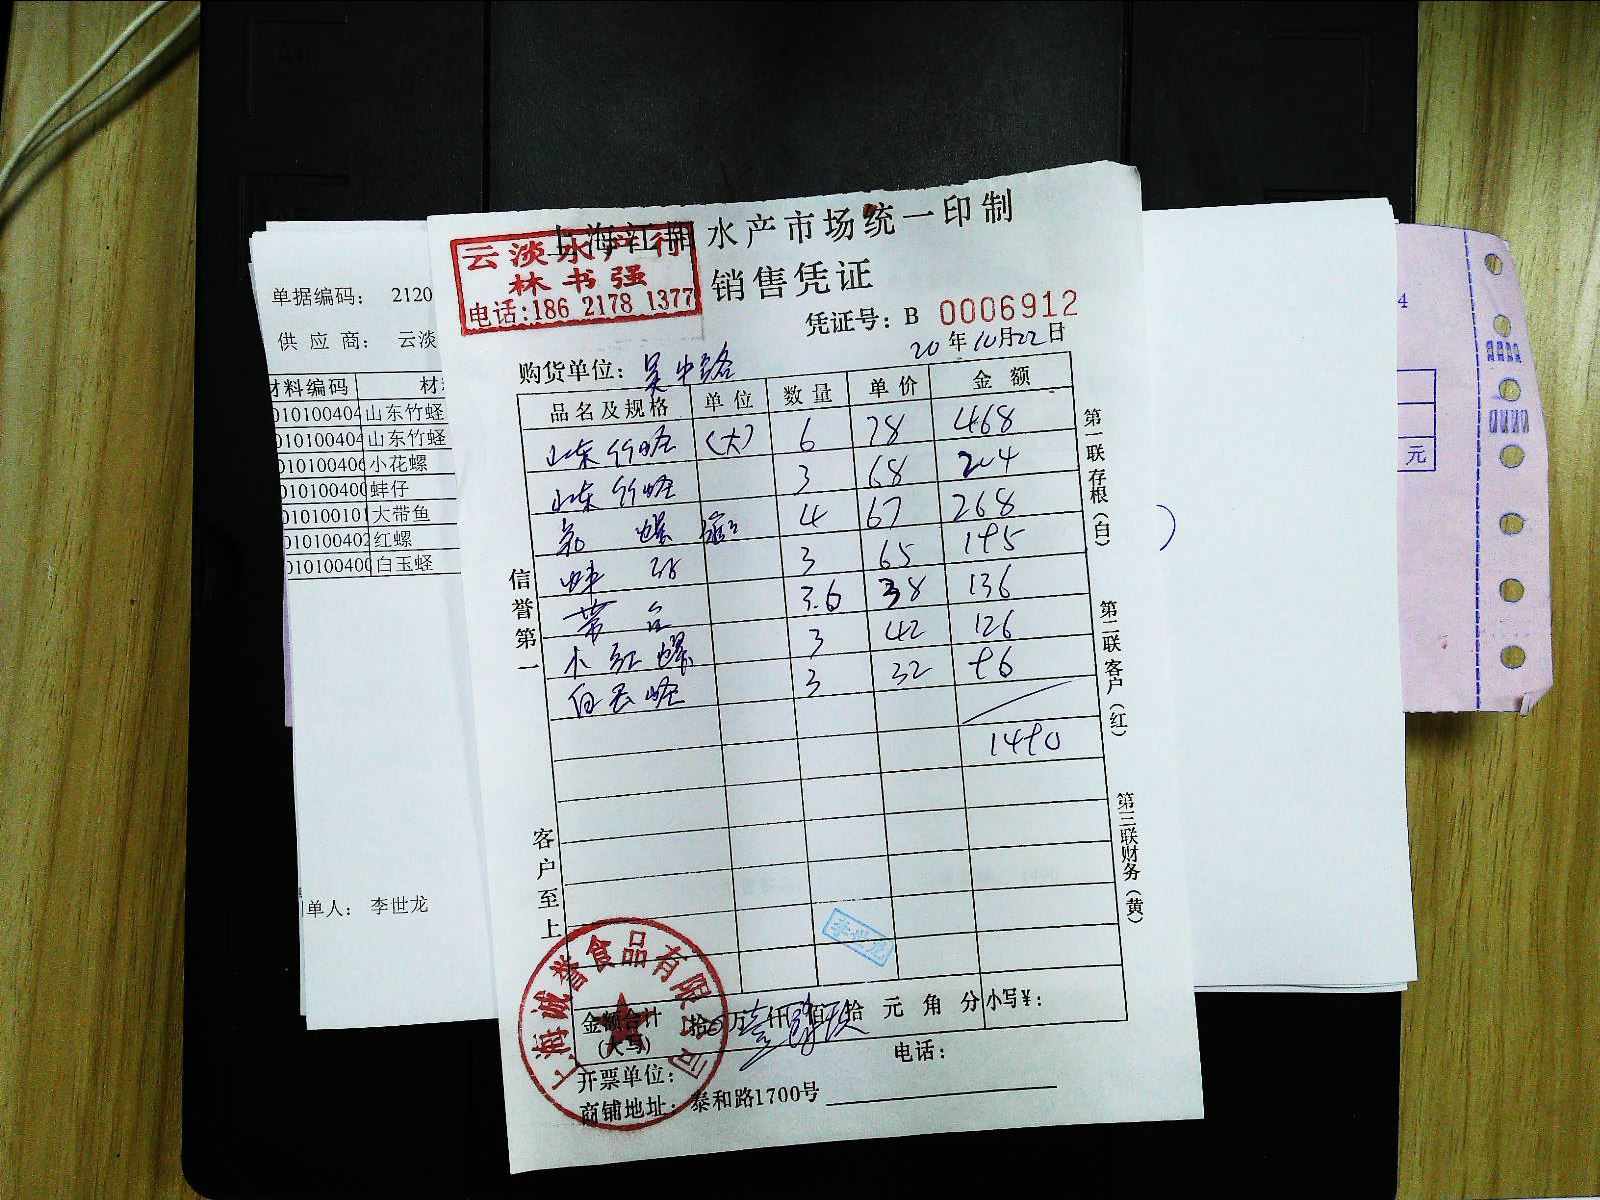 上海江阳水产市场统一印制
销售凭证
云淡水产行
林书强
电话:186 2178 1377
凭证号: B 0006912
20年10月22日
购货单位: 吴中路
品名及规格 单位 数量 单价 金额
山东竹蛏 (大) 6 78 468
山东竹蛏 3 68 204
花螺 4 67 268
蚌仔 3 65 195
带鱼 3.6 38 136
小红螺 3 42 126
白玉蛏 3 32 96
1490
信誉第一
客户至上
第一联存根(白)
第二联客户(红)
第三联财务(黄)
李世龙
金额合计(大写) 拾万壹仟肆佰玖拾元角分 小写¥:
开票单位:
电话:
商铺地址: 泰和路1700号
上海诚誉食品有限公司
单据编码: 2120
供应商: 云淡
材料编码 材
010100404 山东竹蛏
010100404 山东竹蛏
010100406 小花螺
010100400 蚌仔
010100101 大带鱼
010100402 红螺
010100400 白玉蛏
单人: 李世龙
)
4
元